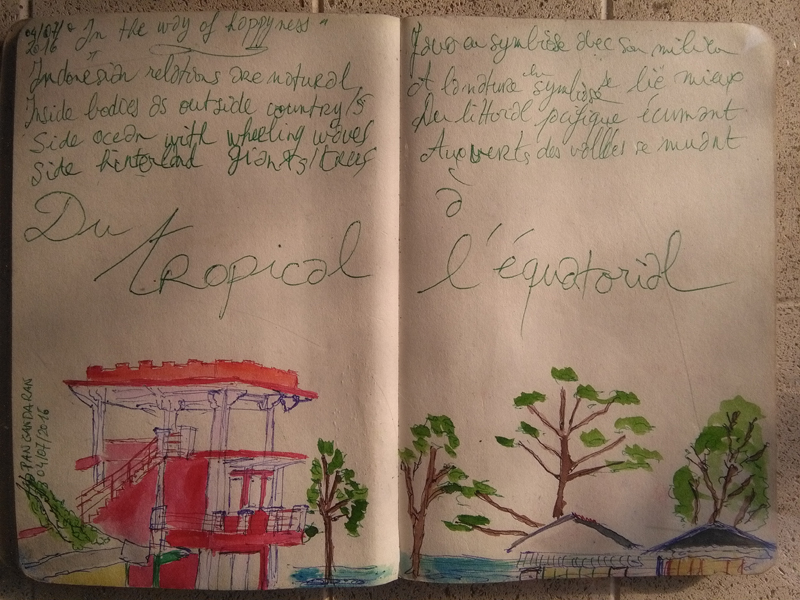 04/07/2016 "In the way of happyness"
Indonesian relations are natural,
Inside bodies as outside country's
Side ocean with wheeling waves
Side hinterland giants trees
Du
tropical
PANGANDARAN
04/07/2016
Java en symbiose avec son milieu
A la nature en symbiose se lie mieux
Du littoral pacifique écumant
Aux verts des vallées se muant
à
l'équatorial